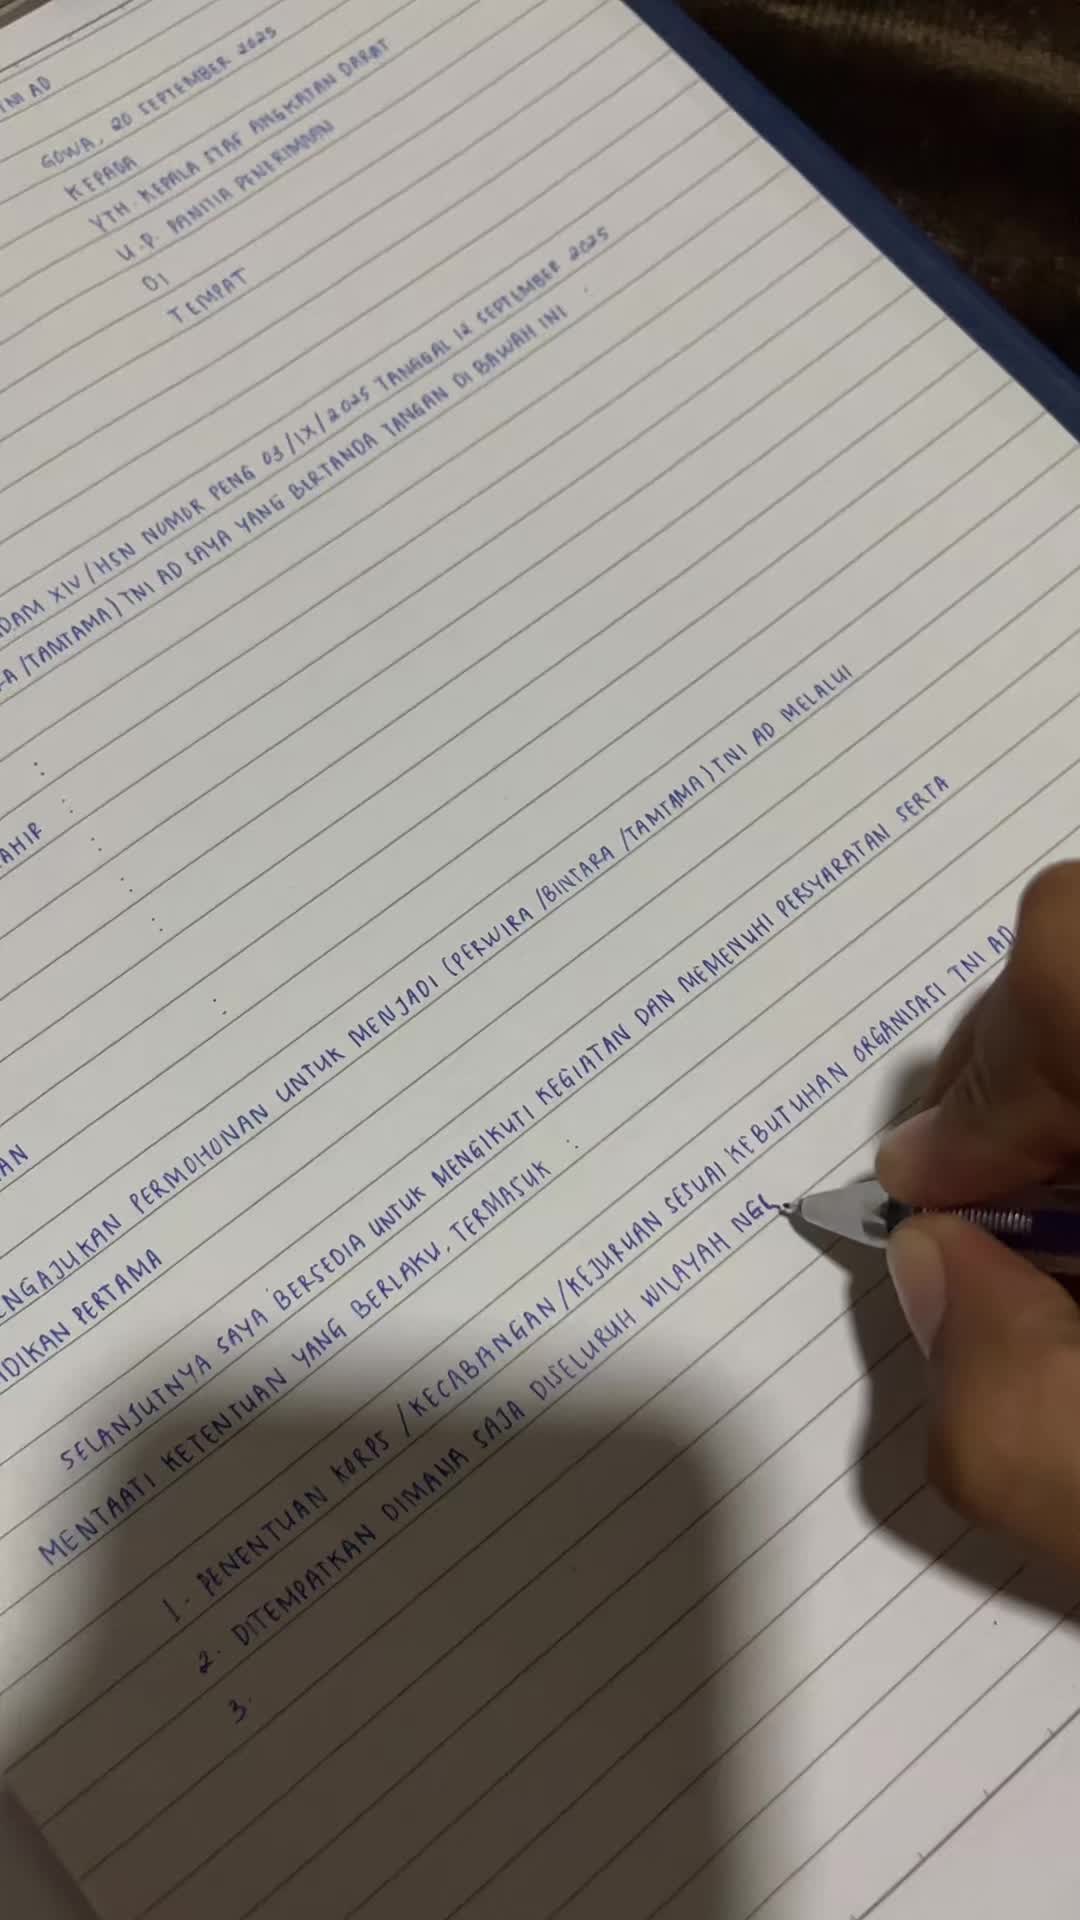 TNI AD
GOWA, 20 SEPTEMBER 2025
KEPADA
YTH. KEPALA STAF ANGKATAN DARAT
U.P. PANITIA PENERIMAAN
DI
TEMPAT
DAM XIV/HSN NOMOR PENG 03/IX/2025 TANGGAL 12 SEPTEMBER 2025
A/TAMTAMA) TNI AD SAYA YANG BERTANDA TANGAN DI BAWAH INI :
:
:
AHIR :
:
:
:
AN
ENGAJUKAN PERMOHONAN UNTUK MENJADI (PERWIRA/BINTARA/TAMTAMA) TNI AD MELALUI
DIKAN PERTAMA
SELANJUTNYA SAYA BERSEDIA UNTUK MENGIKUTI KEGIATAN DAN MEMENUHI PERSYARATAN SERTA
MENTAATI KETENTUAN YANG BERLAKU, TERMASUK :
1. PENENTUAN KORPS/KECABANGAN/KEJURUAN SESUAI KEBUTUHAN ORGANISASI TNI AD
2. DITEMPATKAN DIMANA SAJA DISELURUH WILAYAH
3.